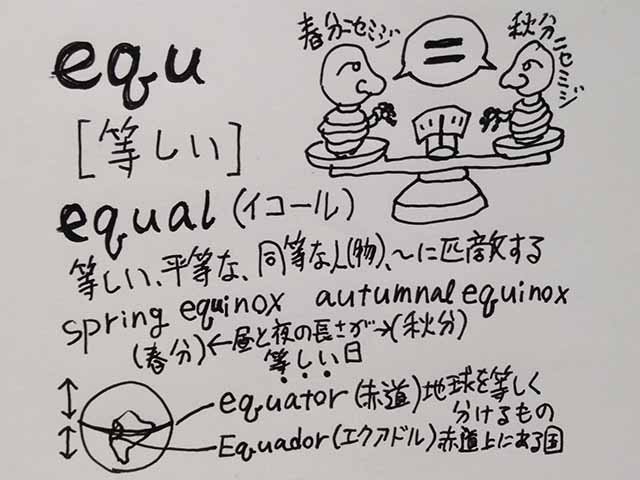 equ
[等しい]
春分ニセミジ
=
秋分ニセミジ
equal (イコール)
等しい、平等な、同等な人(物)、～に匹敵する
spring equinox autumnal equinox
(春分)←昼と夜の長さが→(秋分)
等しい日
equator (赤道) 地球を等しく
分けるもの
Equador (エクアドル) 赤道上にある国